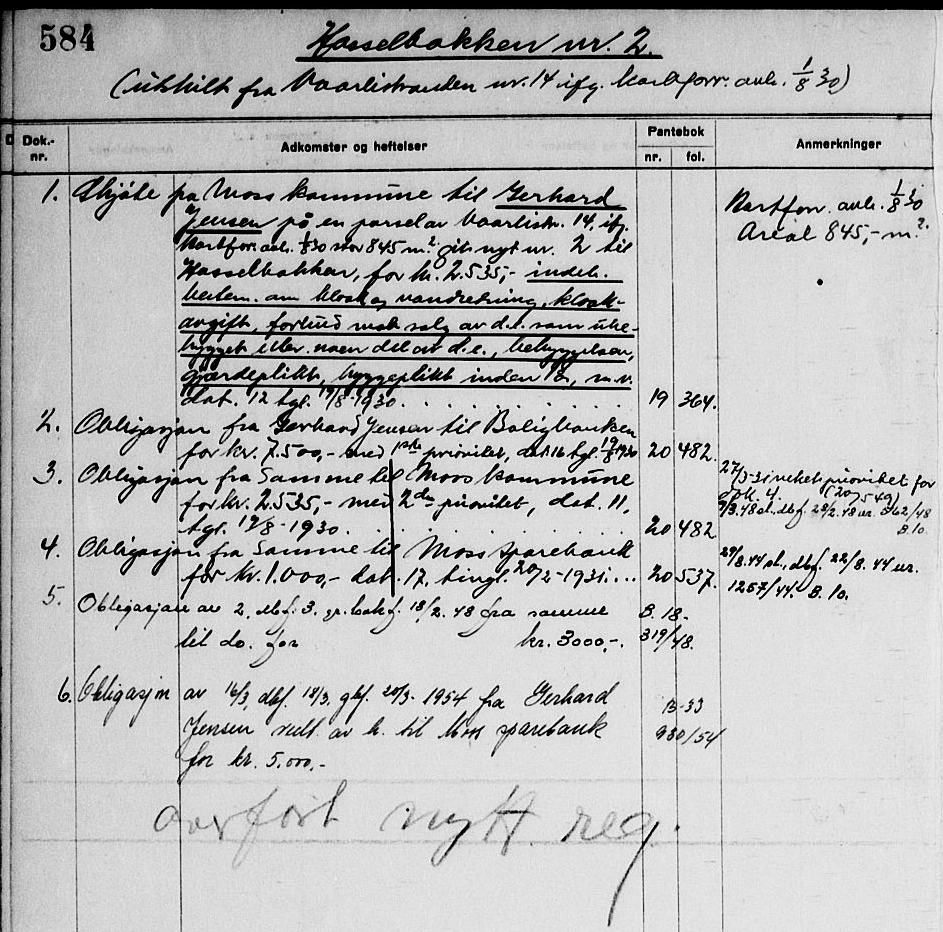 584
Hasselbakken nr. 2.
(utskilt fra Vaarlistranden nr. 14 ifg. kartforr. avh. 1/8 30)
Dok.-nr.
Adkomster og heftelser
Pantebok
nr. fol.
Anmerkninger
1. Skjøte fra Moss kommune til Gerhard
Jensen på en parsel av Vaarlistr. 14, ifg.
kartforr. avh. 1/8 30 stor 845 m.² nyt nr. 2 til
Hasselbakken, for kr. 2.535,- indeh.
bestem. om kloak og vandledning, kloak-
avgift, forbud mot salg av d.e. som ube-
bygget eller noen del av d.e., bebyggelsen,
gjærdeplikt, byggeplikt inden m.v.
dat. 12 tgl. /8-1930. . . . . . . 19 364.
Kartforr. avh. 1/8 30
Areal 845,- m.²
2. Obligasjon fra Gerhard Jensen til Boligbanken
for kr. 7.500,- med 1ste prioritet, dat. 16 tgl. 19/8 1930 20 482.
3. Obligasjon fra Samme til Moss kommune
for kr. 2.535,- med 2den prioritet, dat. 11,
tgl. /8-1930. 20 482
27/3-31 veket prioritet for
dok. 4. (20/549)
/3.48 sl. dbf. 28/2.48 nr. 362/48
B. 10.
4. Obligasjon fra Samme til Moss sparebank
for kr. 1.000,- dat. 17, tingl. 20/2-1931. . . . 20 537.
29/8.44 sl., dbf. 22/8. 44 nr.
1257/44. B. 10.
5. Obligasjon av 2, dbf. 3. gr.bokf. 18/2. 48 fra samme B. 18.
til do. for kr. 3000,-. 319/48.
6. Obligasjon av 16/3, dbf. 18/3, gbf. 20/3- 1954 fra Gerhard B-33
Jensen vedt. av h. til Moss sparebank 930/54
for kr. 5.000,-
overført nytt reg.